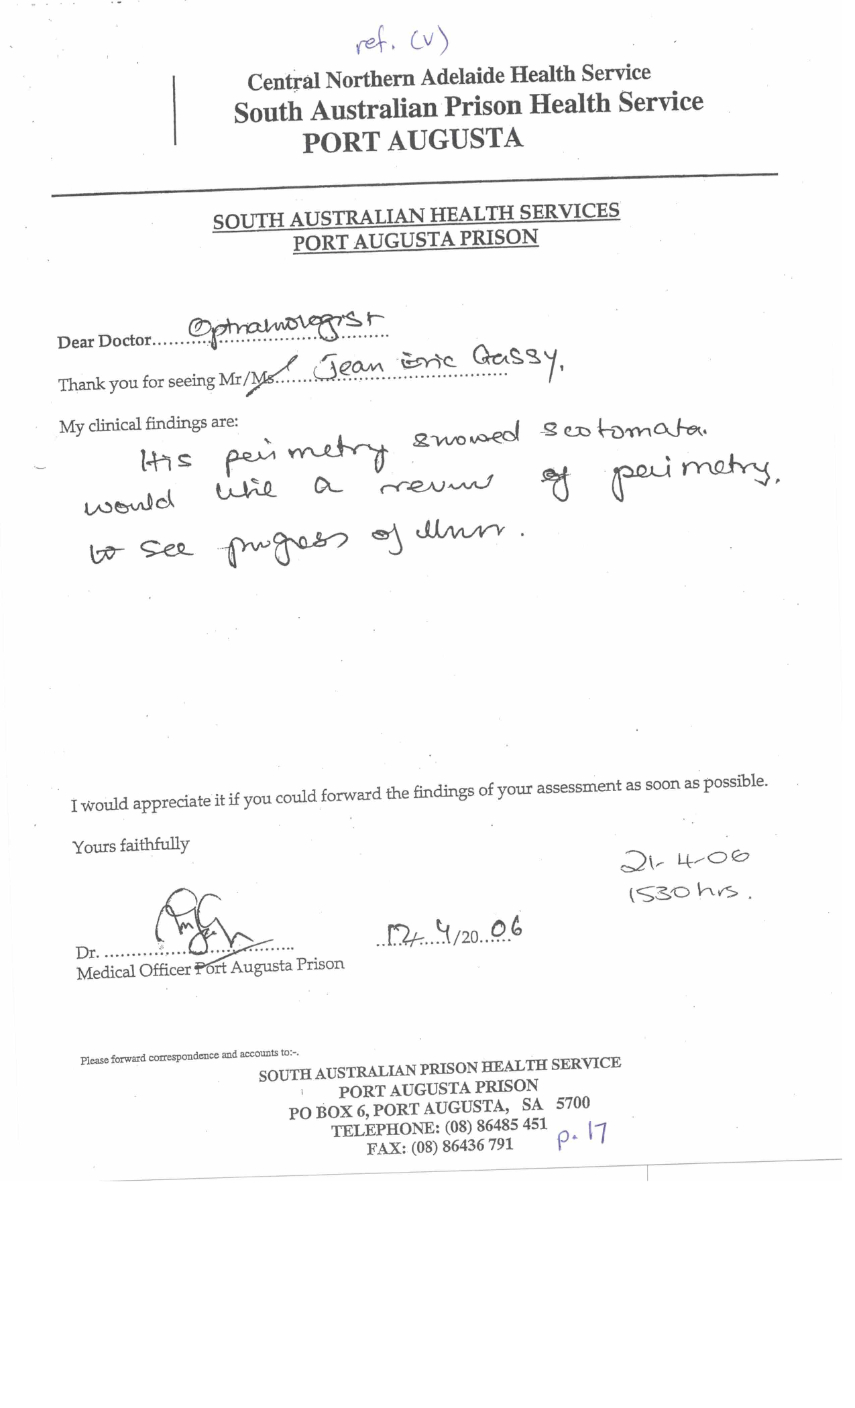 ref. (v)
Central Northern Adelaide Health Service
South Australian Prison Health Service
PORT AUGUSTA
SOUTH AUSTRALIAN HEALTH SERVICES
PORT AUGUSTA PRISON
Dear Doctor.....Opthalmologist.....
Thank you for seeing Mr/Ms.....Jean Eric Gassy,
My clinical findings are:
His perimetry showed scotomata.
would like a review of perimetry,
to see progress of
I would appreciate it if you could forward the findings of your assessment as soon as possible.
Yours faithfully
21-4-06
1530 hrs.
Dr. ..........
4/20..06
Medical Officer Port Augusta Prison
Please forward correspondence and accounts to:-.
SOUTH AUSTRALIAN PRISON HEALTH SERVICE
PORT AUGUSTA PRISON
PO BOX 6, PORT AUGUSTA, SA 5700
TELEPHONE: (08) 86485 451
FAX: (08) 86436 791
p. 17